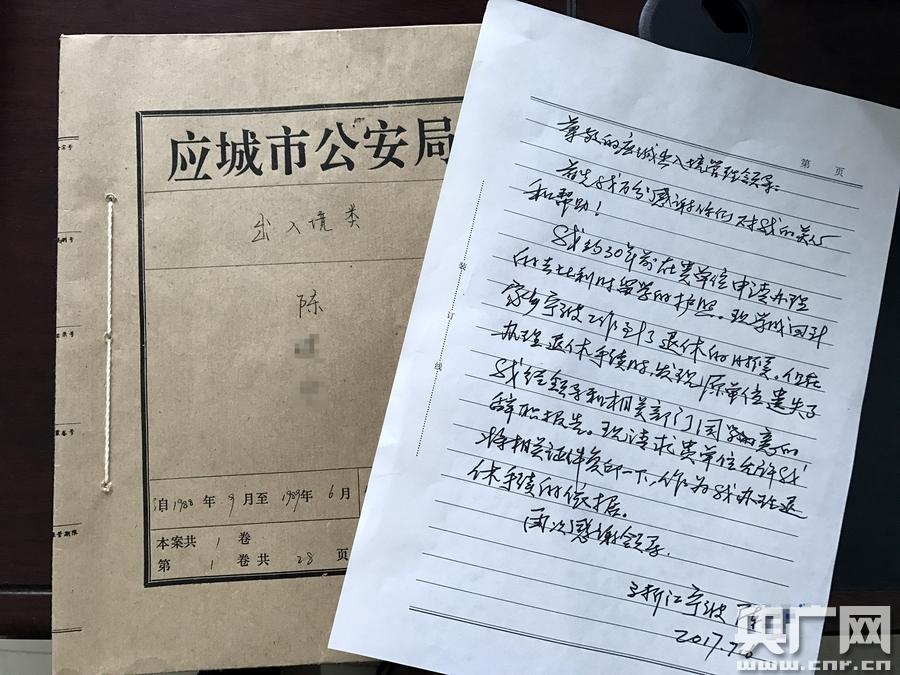 应城市公安局
出入境类
陈
自1988年9月至1989年6月
本案共1卷
第1卷共28页
第 页
尊敬的应城出入境管理领导:
首先我万分感谢你们对我的关心
和帮助!
我约30年前在贵单位申请办理
的去比利时留学的护照。现学成回到
家乡宁波工作到了退休的时候。但在
办理退休手续时,发现原单位遗失了
我经领导和相关部门同意的
辞职报告。现请求贵单位允许我
将相关证件复印一下,作为我办理退
休手续的依据。
再次感谢领导.
浙江宁波
2017.7.6
装
订
线
央广网
www.cnr.cn